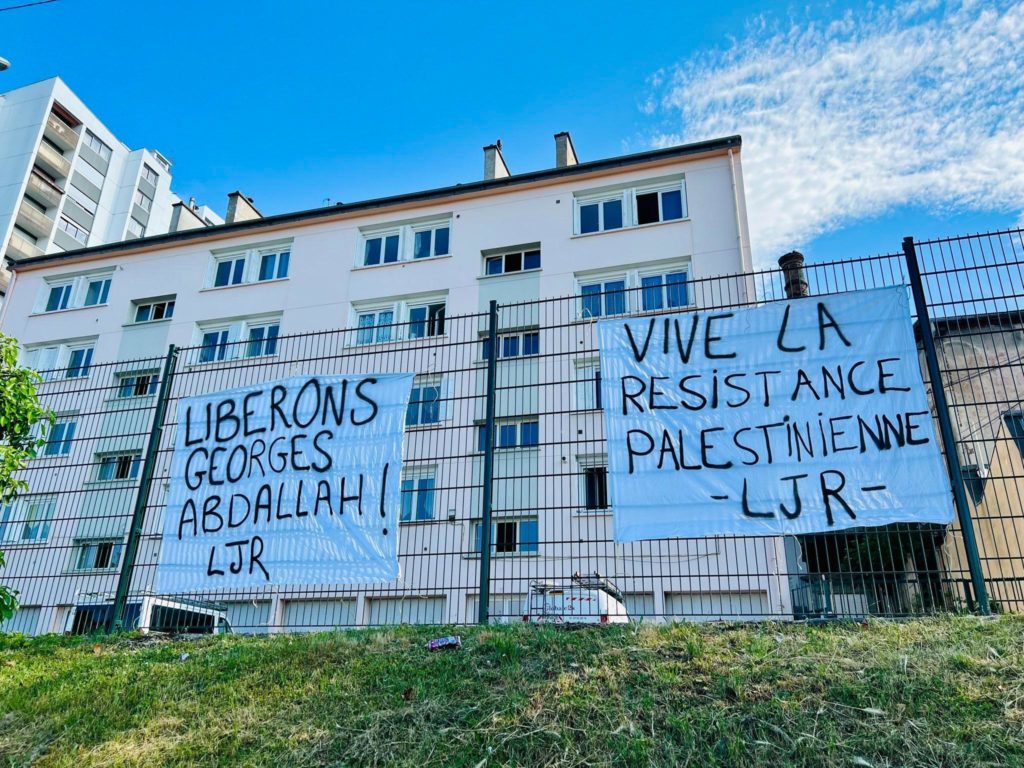 LIBERONS
GEORGES
ABDALLAH !
LJR
VIVE LA
RESISTANCE
PALESTINIENNE
- LJR -